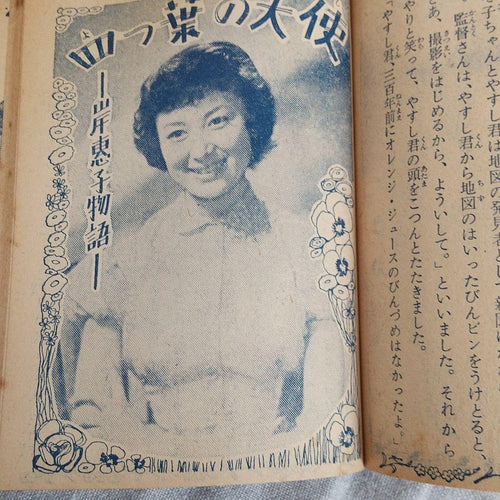 子ちゃんとやすし君は地図の発見者と
監督さんは、やすし君から地図のはいったビンをうけとると、
あ、撮影をはじめるから、よういして。」といいました。それから
やりと笑って、やすし君の頭をこつんとたたきました。
「やすし君、三百年前にオレンジ・ジュースのびんづめはなかったよ。」
四つ葉の天使
―岸惠子物語―